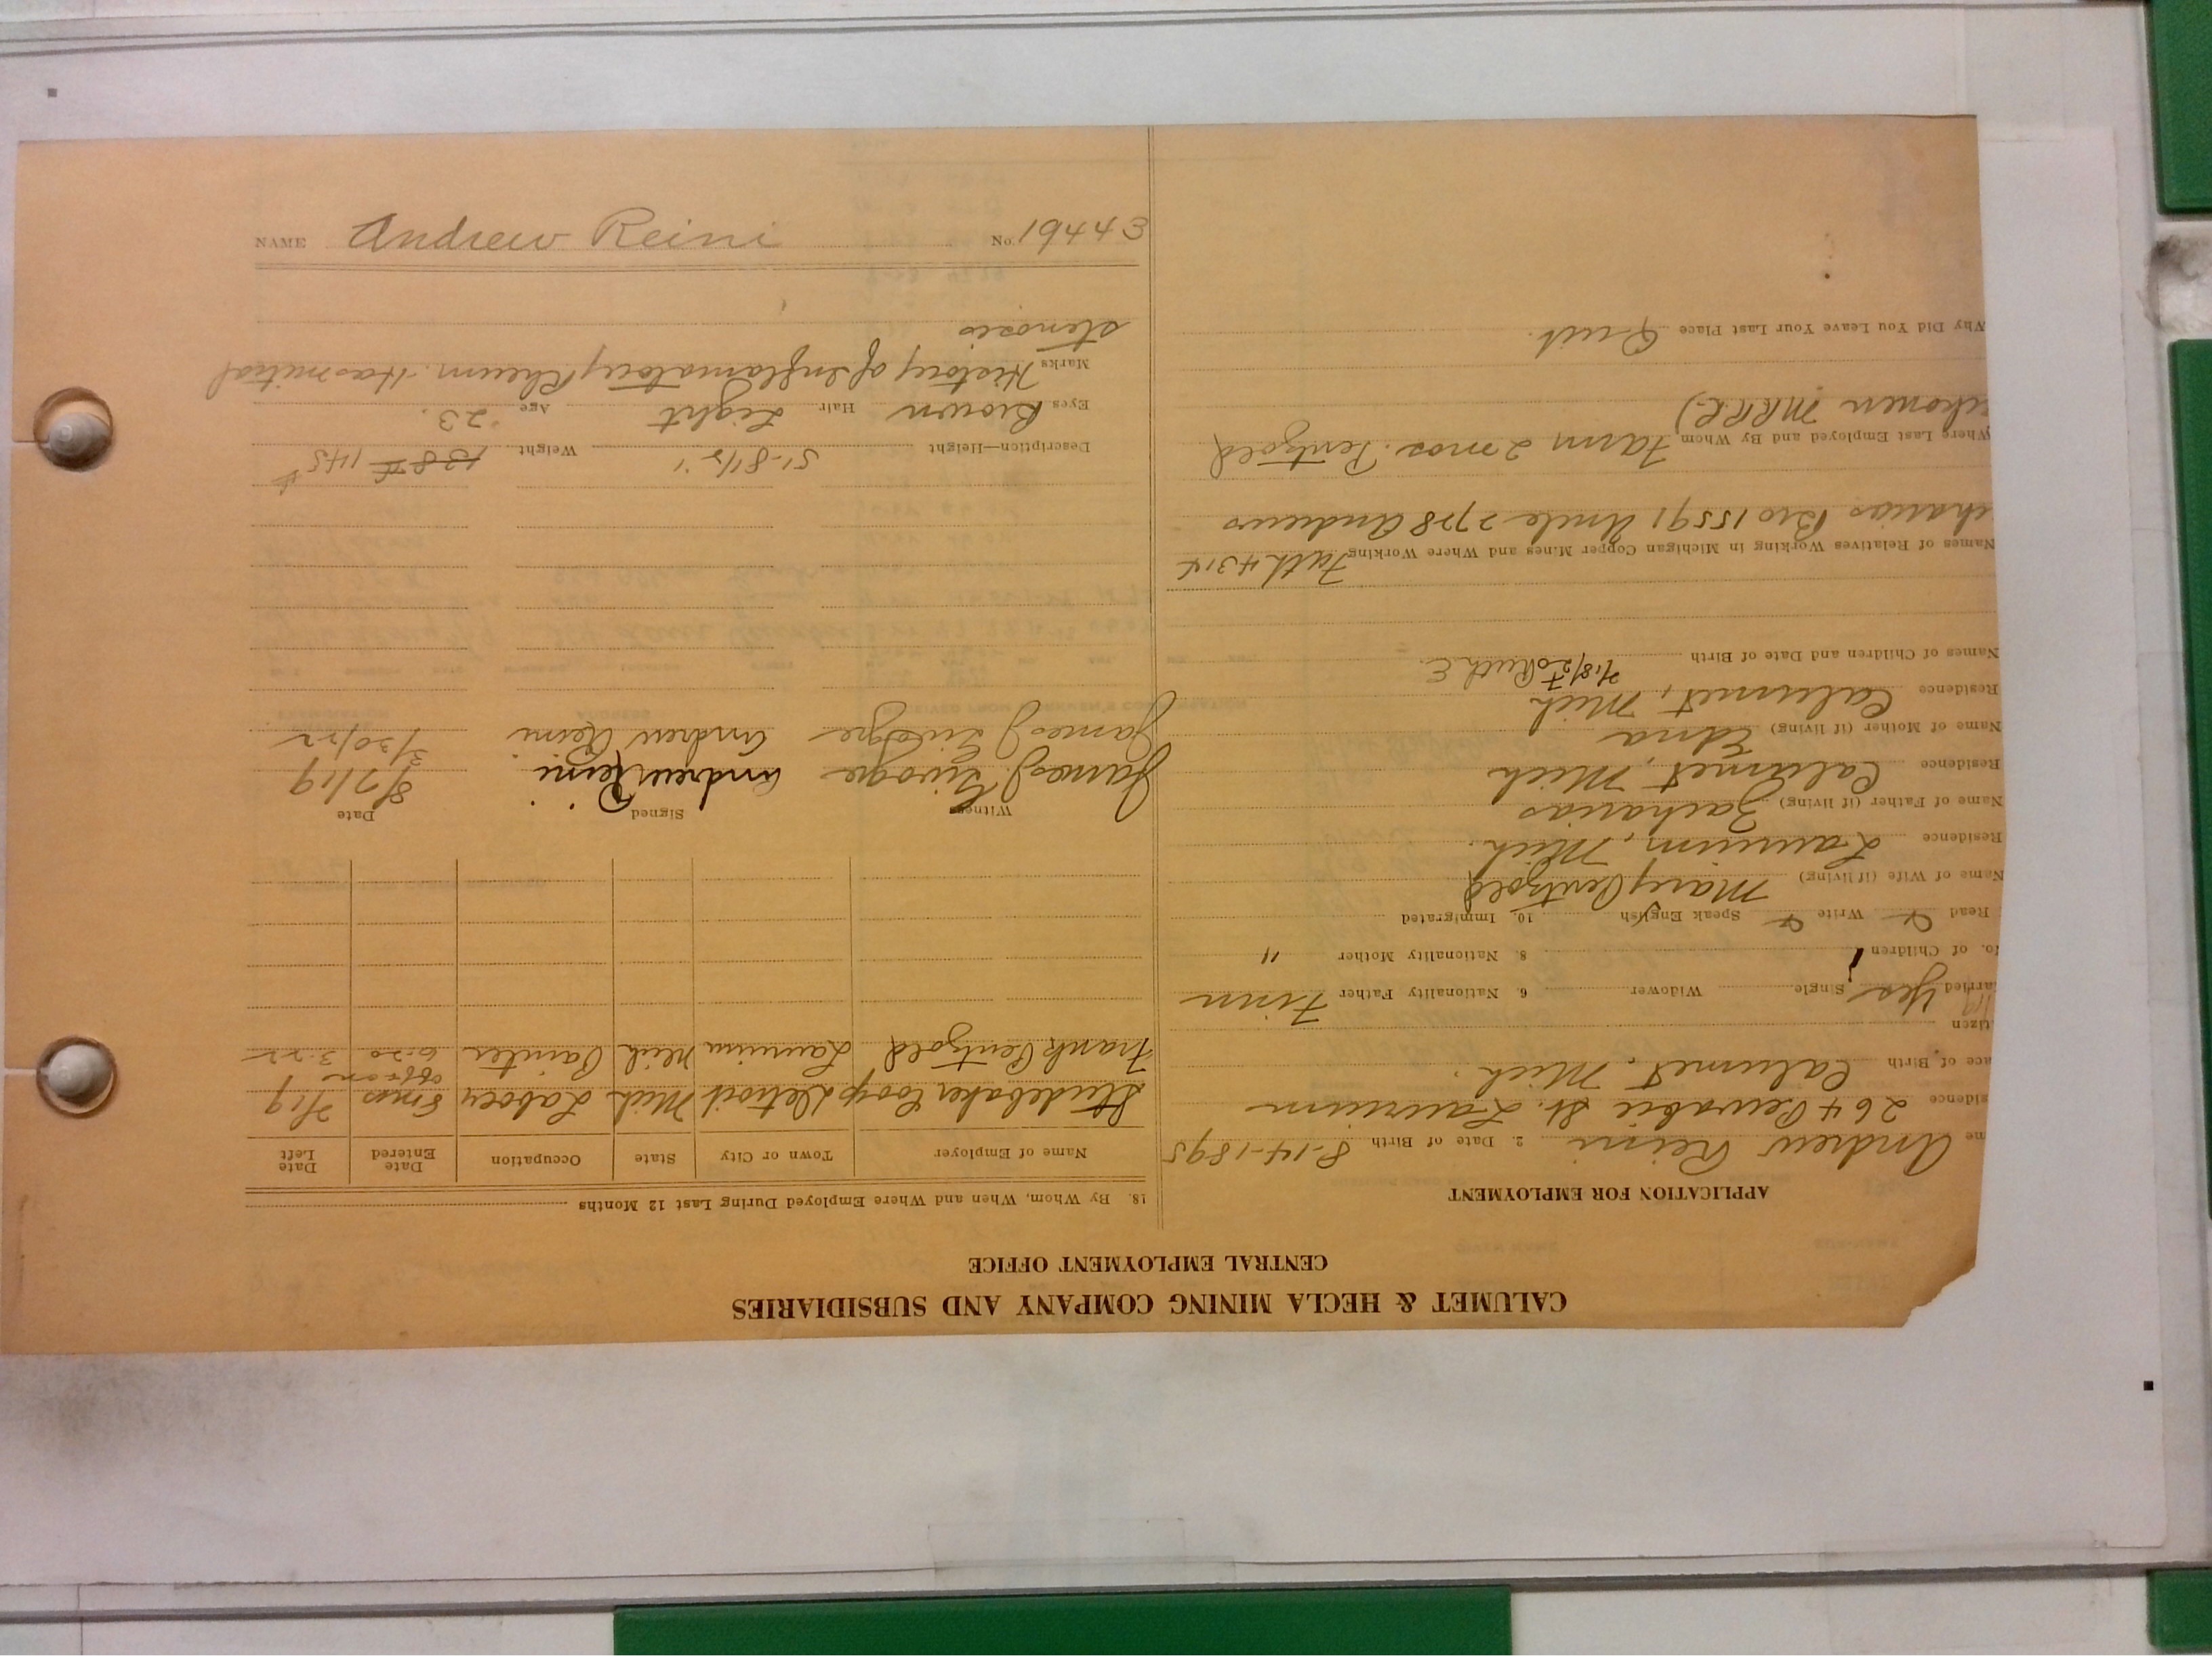 CALUMET & HECLA MINING COMPANY AND SUBSIDIARIES
CENTRAL EMPLOYMENT OFFICE
APPLICATION FOR EMPLOYMENT
me Andrew Reini 2. Date of Birth 8-14-1895
sidence 264 Pewabic St. Laurium
ace of Birth Calumet, Mich.
tizen
arried Yes Single Widower 6. Nationality Father Finn
o. of Children 1 8. Nationality Mother "
Read Write Speak English 10. Immigrated
Name of Wife (if living) Mary Pentzold
Residence Laurium, Mich.
Name of Father (if living) Zacharias
Residence Calumet, Mich
Name of Mother (if living) Edna
Residence Calumet, Mich
Names of Children and Date of Birth Ruth E.
Names of Relatives Working in Michigan Copper Mines and Where Working Fath 4314
charias Bro 15591 Uncle 2728 Andrews
Where Last Employed and By Whom Farm 2 mos. Pentzold
ckonen MRRR)
Why Did You Leave Your Last Place Quit.
18. By Whom, When and Where Employed During Last 12 Months
Name of Employer Town or City State Occupation Date Entered Date Left
Studebaker Corp Detroit Mich Labory 8 mos off & on 7/19
Frank Pentzold Laurium Mich Painter 6-20 3-22
Witness Signed Date
James J. Andrew Reini 8/7/19
James J. Andrew Reini 3/30/22
Description—Height 5'-8 1/2" Weight 138# 145#
Eyes Brown Hair Light Age 23.
Marks History of Inflamatory Rheum. Has mitral
stenosis
NAME Andrew Reini No. 19443